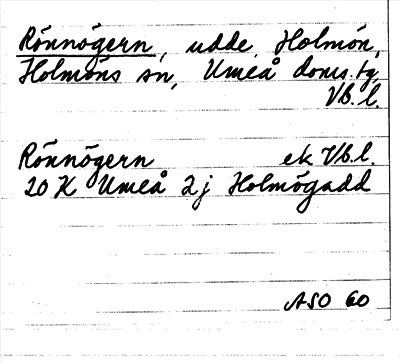 Rönnögern, udde, Holmön,
Holmöns sn, Umeå doms.tg,
Vb.l.
Rönnögern ek Vb.l.
20 K Umeå 2j Holmögadd
ASO 60